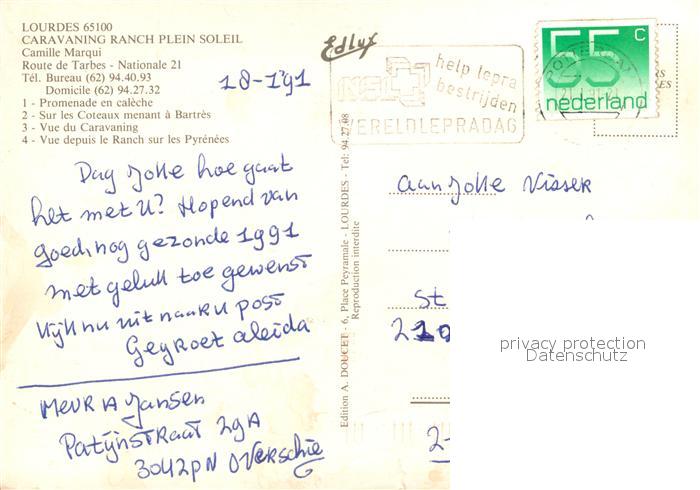 LOURDES 65100
CARAVANING RANCH PLEIN SOLEIL
Camille Marqui
Route de Tarbes - Nationale 21
Tél. Bureau (62) 94.40.93
Domicile (62) 94.27.32
1 - Promenade en calèche
2 - Sur les Coteaux menant à Bartrès
3 - Vue du Caravaning
4 - Vue depuis le Ranch sur les Pyrénées
18-1'91
Dag Jolle hoe gaat
het met U? Hopend van
goed nog gezonde 1991
met geluk toe gewenst
Kijk nu uit naar U post
Gegroet aleida
MEVR A Jansen
Patijnstraat 29A
3042PN OVerschie
Edition A. DOUCET - 6, Place Peyramale - LOURDES - Tel: 94.27.08
Reproduction interdite
Edlux
NSL
help lepra
bestrijden
WERELDLEPRADAG
55 c
nederland
aan Jolle Visser
St
2
privacy protection
Datenschutz
2-